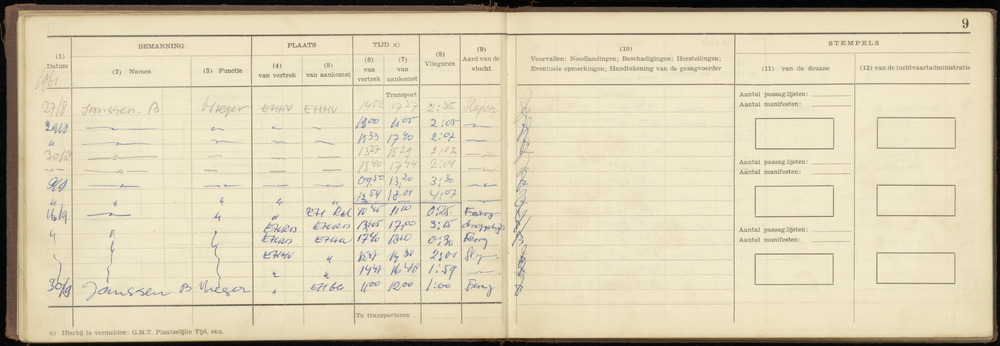 9
BEMANNING PLAATS TIJD x) (8) (9) (10) STEMPELS
(1) Datum (2) Namen (3) Functie (4) van vertrek (5) van aankomst (6) van vertrek (7) van aankomst Vlieguren Aard van de vlucht
Voorvallen; Noodlandingen; Beschadigingen; Herstellingen;
Eventuele opmerkingen; Handtekening van de gezagvoerder
(11) van de douane (12) van de luchtvaartadministratie
Transport
Aantal passag.lijsten:
Aantal manifesten:
27/8 Janssen. B Vlieger EHHV EHHV 17 27 2:35 Slepen
2:05
" " " " " 15 33 17 40 2:07
30/8 13 27 15 29 2:02
15 40 17 44 2:04
Aantal passag.lijsten:
Aantal manifesten:
9/9 " " " 09 50 13 20 3:30
" " " " " 13 54 18 01 4:07
16/9 " " EH Rd 10 45 11 10 0:25 Ferry
" " EHRD EHRD 17 00 3:15 dropping
EHRD EHHV 17 40 18 10 0:30 Ferry
Aantal passag.lijsten:
Aantal manifesten:
EHHV " 2:01
" " 14 47 16 46 1:59
30/9 Janssen B Vlieger " 11 00 12 00 1:00 Ferry
Te transporteren
x) Hierbij te vermelden: G.M.T. Plaatselijke Tijd, enz.